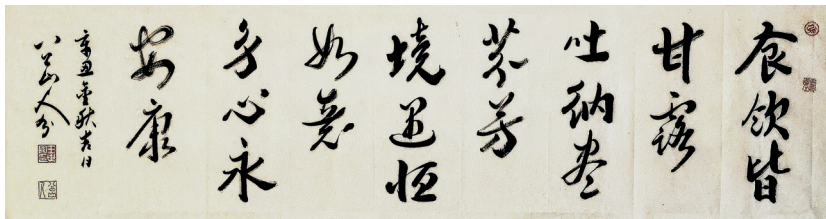 食飲皆
甘露
吐納盡
芬芳
境遇恒
如意
身心永
安康
辛丑金秋吉日
八公山人